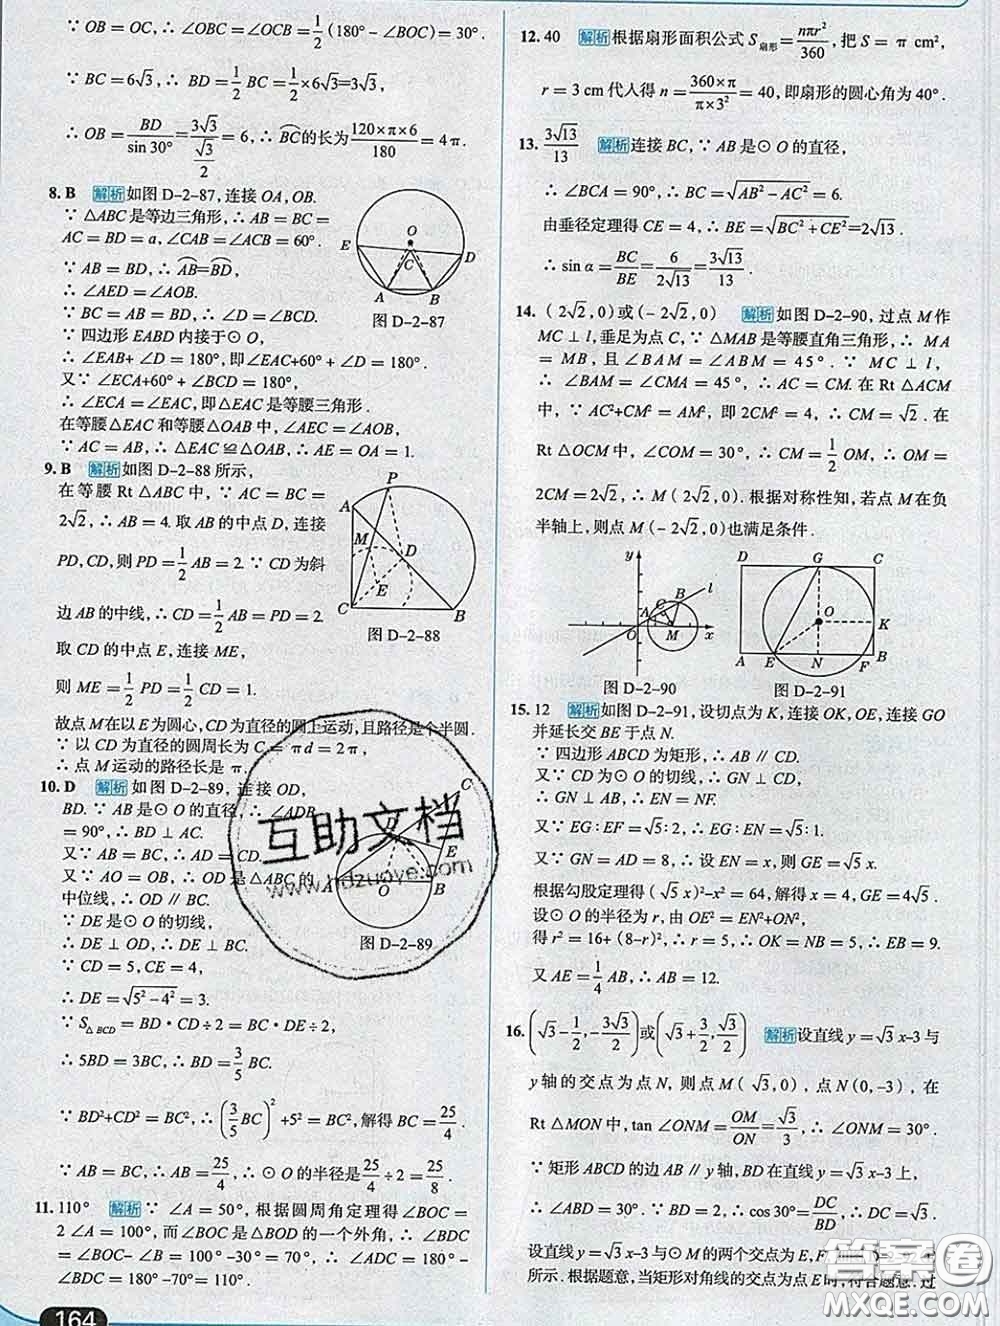 ∵ OB = OC, ∴ ∠OBC = ∠OCB = 1/2 (180° - ∠BOC) = 30°.
∵ BC = 6√3, ∴ BD = 1/2 BC = 1/2 × 6√3 = 3√3,
∴ OB = BD/sin 30° = 3√3/(√3/2) = 6, ∴ BC的长为 120×π×6/180 = 4π.
8. B 解析 如图 D-2-87, 连接 OA, OB.
∵ △ABC 是等边三角形, ∴ AB = BC =
AC = BD = a, ∠CAB = ∠ACB = 60°.
∵ AB = BD, ∴ AB=BD,
∴ ∠AED = ∠AOB.
∵ BC = AB = BD, ∴ ∠D = ∠BCD.
∵ 四边形 EABD 内接于⊙O,
∴ ∠EAB+ ∠D = 180°, 即∠EAC+60° + ∠D = 180°.
又∵ ∠ECA+60° + ∠BCD = 180°,
∴ ∠ECA = ∠EAC, 即△EAC 是等腰三角形.
在等腰△EAC 和等腰△OAB 中, ∠AEC = ∠AOB,
∵ AC = AB, ∴ △EAC ≌ △OAB, ∴ AE = OA = 1.
E O D C A B
图 D-2-87
9. B 解析 如图 D-2-88 所示,
在等腰 Rt △ABC 中, ∵ AC = BC =
2√2, ∴ AB = 4. 取 AB 的中点 D, 连接
PD, CD, 则 PD = 1/2 AB = 2. ∵ CD 为斜
边 AB 的中线, ∴ CD = 1/2 AB = PD = 2.
取 CD 的中点 E, 连接 ME,
则 ME = 1/2 PD = 1/2 CD = 1.
故点 M 在以 E 为圆心, CD 为直径的圆上运动, 且路径是个半圆.
∵ 以 CD 为直径的圆周长为 C = πd = 2π,
∴ 点 M 运动的路径长是 π.
P A M D E C B
图 D-2-88
10. D 解析 如图 D-2-89, 连接 OD,
BD. ∵ AB 是⊙O 的直径, ∴ ∠ADB
= 90°, ∴ BD ⊥ AC.
又∵ AB = BC, ∴ AD = CD.
又∵ AO = OB, ∴ OD 是△ABC 的
中位线, ∴ OD ∥ BC.
∵ DE 是⊙O 的切线,
∴ DE ⊥ OD, ∴ DE ⊥ BC.
∵ CD = 5, CE = 4,
∴ DE = √(5²-4²) = 3.
∵ S△BCD = BD·CD÷2 = BC·DE÷2,
∴ 5BD = 3BC, ∴ BD = 3/5 BC.
∵ BD²+CD² = BC², ∴ (3/5 BC)² +5² = BC², 解得 BC = 25/4.
∵ AB = BC, ∴ AB = 25/4, ∴ ⊙O 的半径是 25/4 ÷ 2 = 25/8.
C E A O B
图 D-2-89
11. 110° 解析 ∵ ∠A = 50°, 根据圆周角定理得∠BOC =
2∠A = 100°, 而∠BOC 是△BOD 的一个外角, ∴ ∠BDC
= ∠BOC - ∠B = 100° -30° = 70°, ∴ ∠ADC = 180° -
∠BDC = 180° -70°= 110°.
164
12. 40 解析 根据扇形面积公式 S扇形 = nπr²/360, 把 S = π cm²,
r = 3 cm 代入得 n = 360×π/π×3² = 40, 即扇形的圆心角为 40°.
13. 3√13/13 解析 连接 BC, ∵ AB 是⊙O 的直径,
∴ ∠BCA = 90°, ∴ BC = √(AB²-AC²) = 6.
由垂径定理得 CE = 4, ∴ BE = √(BC²+CE²)=2√13.
∴ sin α = BC/BE = 6/2√13 = 3√13/13.
14. (2√2, 0)或(-2√2, 0) 解析 如图 D-2-90, 过点 M 作
MC ⊥ l, 垂足为点 C, ∵ △MAB 是等腰直角三角形, ∴ MA
= MB, 且 ∠BAM = ∠ABM = 45°. ∵ MC ⊥ l,
∴ ∠BAM = ∠CMA = 45°, ∴ AC = CM. 在 Rt △ACM
中, ∵ AC²+CM² = AM², 即 2CM² = 4, ∴ CM = √2. 在
Rt △OCM 中, ∠COM = 30°, ∴ CM = 1/2 OM, ∴ OM =
2CM = 2√2, ∴ M (2√2, 0). 根据对称性知, 若点 M 在负
半轴上, 则点 M(-2√2, 0)也满足条件.
y B l C A O M x
图 D-2-90
D G C O K A E N F B
图 D-2-91
15. 12 解析 如图 D-2-91, 设切点为 K, 连接 OK, OE, 连接 GO
并延长交 BE 于点 N.
∵ 四边形 ABCD 为矩形, ∴ AB ∥ CD.
又∵ CD 为⊙O 的切线, ∴ GN ⊥ CD,
∴ GN ⊥ AB, ∴ EN = NF.
又∵ EG∶EF =√5∶2, ∴ EG∶EN =√5∶1.
又∵ GN = AD = 8, ∴ 设 EN = x, 则 GE = √5 x,
根据勾股定理得(√5 x)²-x² = 64, 解得 x = 4, GE = 4√5.
设⊙O 的半径为 r, 由 OE² = EN²+ON²,
得 r² = 16+ (8-r)², ∴ r = 5, ∴ OK = NB = 5, ∴ EB = 9.
又 AE = 1/4 AB, ∴ AB = 12.
16. (√3 - 1/2, - 3√3/2)或(√3 + 3/2, √3/2) 解析 设直线 y = √3 x-3 与
y 轴的交点为点 N, 则点 M( √3, 0), 点 N(0, -3), 在
Rt △MON 中, tan ∠ONM = OM/ON = √3/3, ∴ ∠ONM = 30°.
∵ 矩形 ABCD 的边 AB ∥ y 轴, BD 在直线 y = √3 x-3 上,
∴ ∠ABD = 30°, ∴ ∠BDC = 30°, ∴ cos 30°= DC/BD,
设直线 y = √3 x-3 与⊙M 的两个交点为 E, F,
所示. 根据题意, 当矩形对角线的交点为点 E 时, 符合题意. 过
互助文档
www.hdzuoye.com
答案圈
MXQE.COM